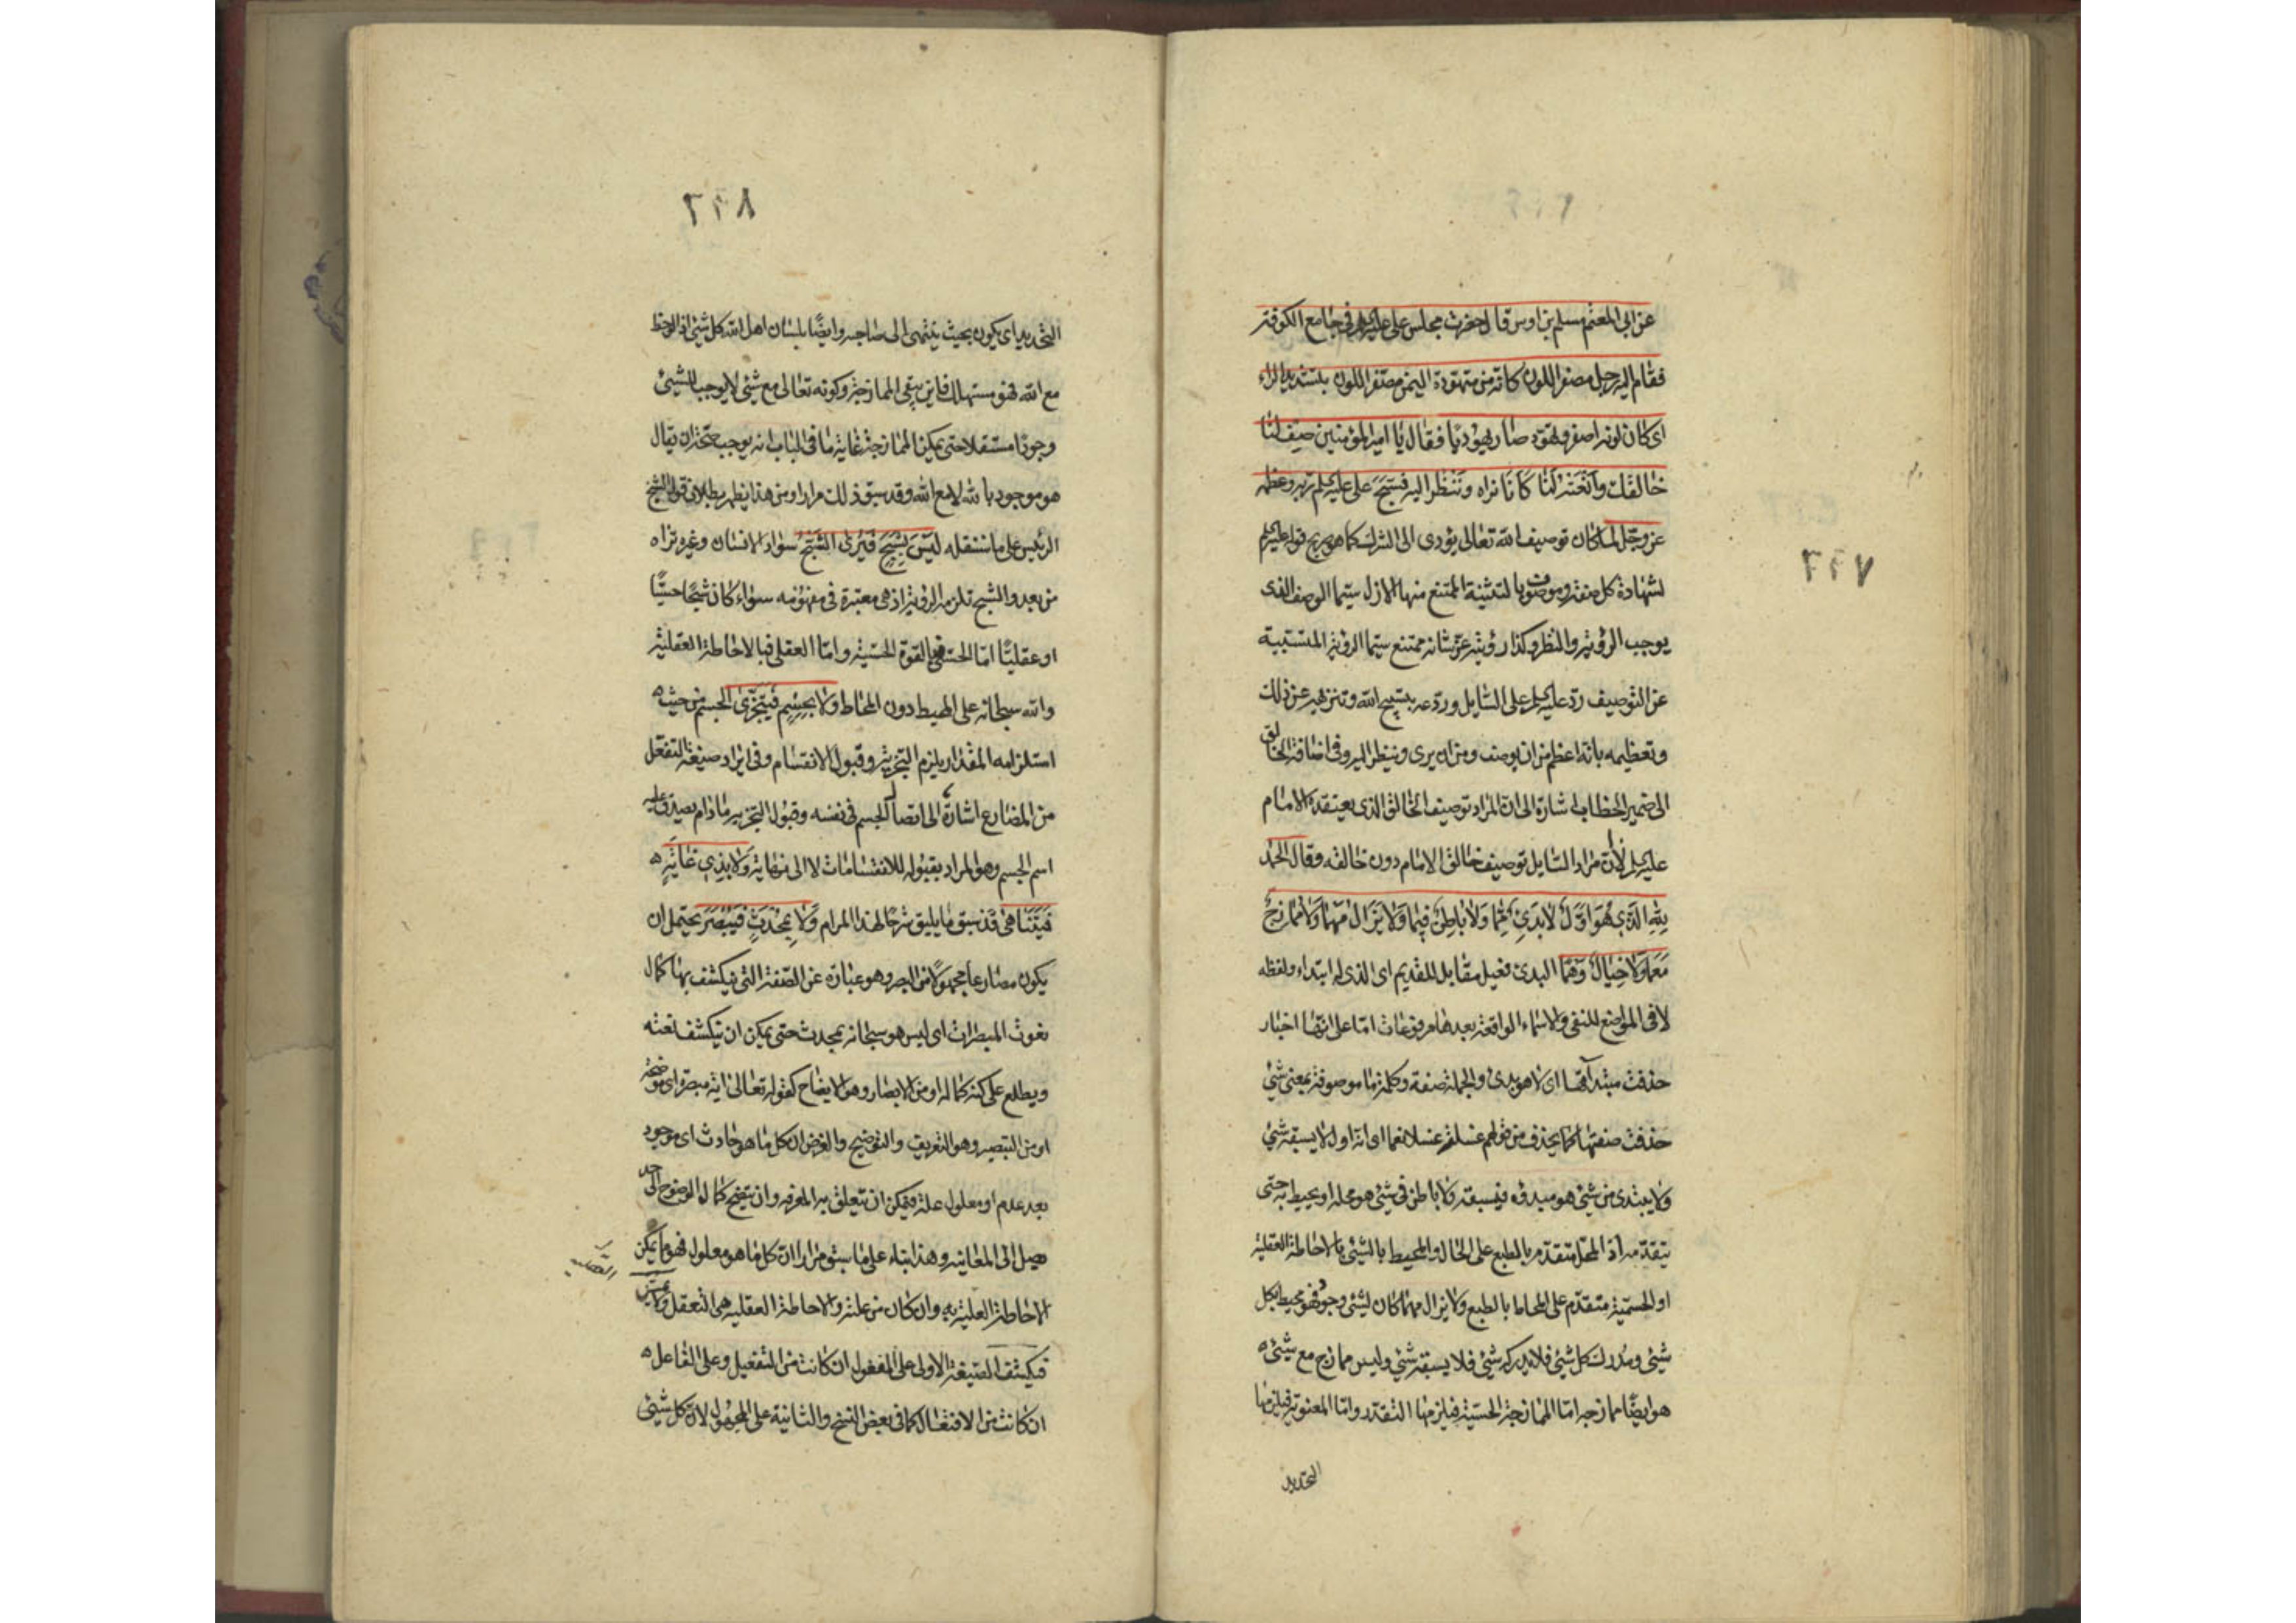 عن ابی المعتمر مسلم بن اوس قال احضرت مجلس علی علیه فی جامع الکوفة
فقام الیه رجل مصفر اللون کانه من متهودة الیمن مصفر اللون بتشدید الراء
ای کان لونه اصفر و تهود صار یهودیا فقال یا امیر المؤمنین صف لنا
خالقک و انعته لنا کانا نراه و ننظر الیه فسبح علی علیه السلم ربه و عظمه
عز و جل لما کان توصیف الله تعالی یؤدی الی الشرک کما هو صریح قوله علیه السلم
لشهادة کل صفة و موصوف بالتثنیة الممتنع منها الازل سیما الوصف الذی
یوجب الرؤیة و النظر و کذا رؤیته عز شانه ممتنع سیما الرؤیة المسببیة
عن التوصیف رد علیه السلم علی السایل و ردعه بتسبیح الله و تنزیهه عن ذلک
و تعظیمه بانه اعظم من ان یوصف و من ان یری و ینظر الیه و فی اضافة الخالق
الی ضمیر الخطاب اشارة الی ان المراد توصیف الخالق الذی یعتقده الامام
علیه السلم لان مراد السایل توصیف خالق الامام دون خالقه و قال الحمد
لِلّهِ الَّذِی هُوَ اَوَّلٌ لَا بَدِیءٌ مِمَّا وَ لَا بَاطِنٌ فِیمَا وَ لَا یَزَالُ مَهْمَا وَ لَا مُمَازِجٌ
مَعَ مَا وَ لَا خِیَالٌ وَهْمًا البدیء فعیل مقابل للقدیم ای الذی له ابتداء و لفظه
لا فی المواضع للنفی و الاسماء الواقعة بعدها مرفوعات اما علی انها اخبار
حذفت مبتدآتها ای لا هو بدیء و الجملة صفة و کلمة ما موصوفة بمعنی شیء
حذفت صفتها کما یحذف من قولهم غسلته غسلا نعما ای انه اول لا یسبقه شیء
و لا یبتدی من شیء هو مبدؤه فیسبقه و لا باطن فی شیء هو محله او یحیط به حتی
یتقدمه اذ المحل متقدم بالطبع علی الحال و المحیط بالشیء بالاحاطة العقلیة
او الحسیة متقدم علی المحاط بالطبع و لا یزال مهما کان لشیء وجود فهو محیط بکل
شیء و مدرک کل شیء فلا یدرکه شیء فلا یسبقه شیء و لیس ممازج مع شیء
هو ایضا ممازجه اما الممازجة الحسیة فیلزمها التقدر و اما المعنویة فیلزمها
التحدید
٢٦٧
٢٦٨
التحدید ای یکون بحیث ینتهی الی صاحبه و ایضا بلسان اهل الله کل شیء اذا لوحظ
مع الله فهو مستهلک فاین یبقی الممازجة و کونه تعالی مع شیء لا یوجب للشیء
وجودا مستقلا حتی یمکن الممازجة غایة ما فی الباب انه یوجب صحة ان یقال
هو موجود بالله لا مع الله و قد سبق ذلک مرارا و من هذا یظهر بطلان قول الشیخ
الرئیس علی ما سننقله لَیْسَ بِشَبَحٍ فَیُرَی الشبح سواد الانسان و غیره تراه
من بعید و الشبح تلزمه الرؤیة اذ هی معتبرة فی مفهومه سواء کان شبحا حسیا
او عقلیا اما الحسی فبالقوة الحسیة و اما العقلی فبالاحاطة العقلیة
و الله سبحانه علی المحیط دون المحاط وَ لَا بِجِسْمٍ فَیَتَجَزَّی الجسم من حیث
استلزامه المقدار یلزم التجزیة و قبول الانقسام و فی ایراد صیغة التفعل
من المضارع اشارة الی اتصال الجسم فی نفسه و قبول التجزیه مادام یصدق علیه
اسم الجسم و هو المراد بقبوله للانقسامات لا الی نهایة وَ لَا بِذِی غَایَةٍ
فَیَتَنَاهَی قد سبق ما یلیق شرحا لهذا المرام وَ لَا بِمُحْدَثٍ فَیُبْصَرَ یحتمل ان
یکون مضارعا مجهولا من البصر و هو عبارة عن الصفة التی ینکشف بها کمال
نعوت المبصرات ای لیس هو سبحانه بمحدث حتی یمکن ان ینکشف نعته
و یطلع علی کنه کماله او من الابصار و هو الایضاح کقوله تعالی آیة مبصرة ای موضحة
او من التبصیر و هو التعریف و التوضیح و الغرض ان کل ما هو حادث ای موجود
بعد عدم او معلول علة فیمکن ان یتعلق به المعرفة و ان یتضح کماله الوضوح الی حد
یصل الی المعاینه و هذا بناء علی ما سبق مرارا ان کل ما هو معلول فهو مما یمکن
الاحاطة العلیة به و ان کان من علته و الاحاطة العقلیة هی التعقل
فیکشف الصیغة الاولی علی المفعول ان کانت من التفعیل و علی الفاعل
ان کانت من الافتعال کما فی بعض النسخ و الثانیة علی المجهول لان کل شیء